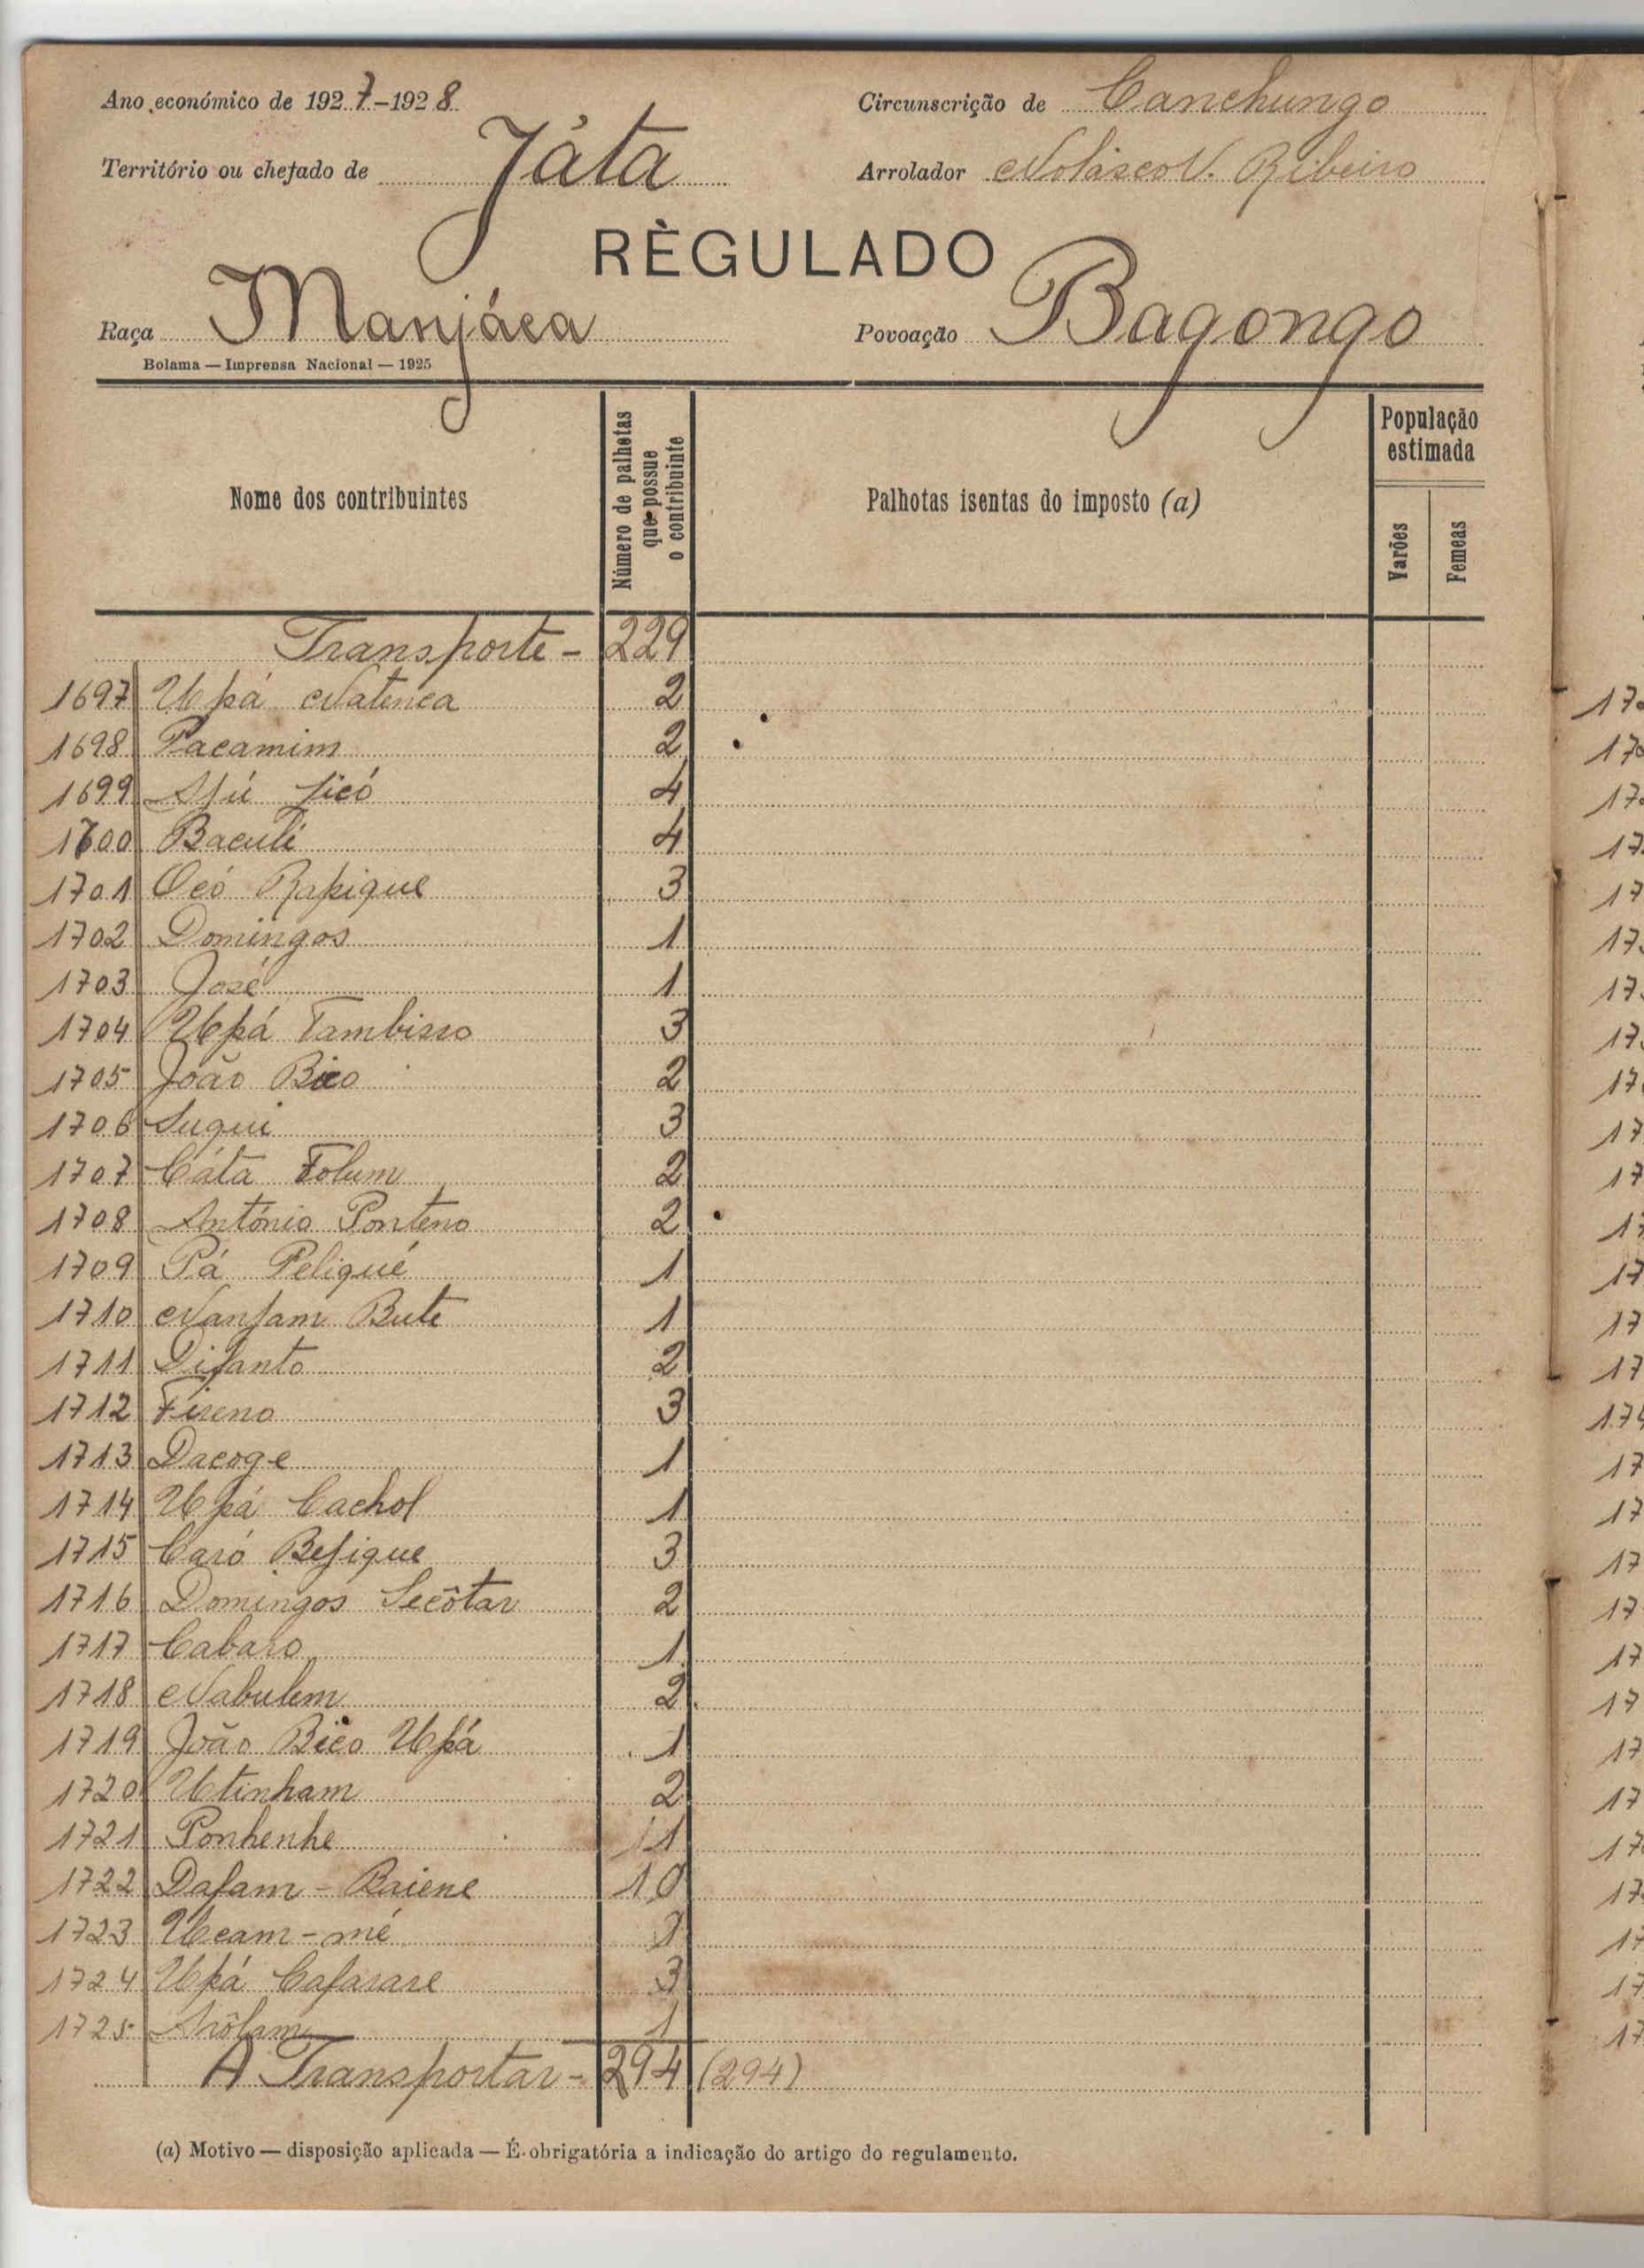 Ano económico de 1927-1928
Circunscrição de Canchungo
Território ou chefado de Játa
Arrolador Nolásco V. Ribeiro
RÈGULADO
Raça Manjáca
Povoação Bagongo
Bolama — Imprensa Nacional — 1925
Nome dos contribuintes
Número de palhotas que possue o contribuinte
Palhotas isentas do imposto (a)
População estimada
Varões
Femeas
Transporte - 229
1697 Upá Natenca 2
1698 Pacamim 2
1699 4
1700 Baculi 4
1701 Ocó Rapique 3
1702 Domingos 1
1703 José 1
1704 Upá Tambisso 3
1705 João Bico 2
1706 Suqui 3
1707 Cáta Tolum 2
1708 António Ponteno 2
1709 Pá Peliqué 1
1710 Nanjam Bute 1
1711 Difanto 2
1712 3
1713 Dacoge 1
1714 Upá Cachol 1
1715 Caró Befique 3
1716 Domingos Secôtar 2
1717 Cabaro 1
1718 Nabulem 2
1719 João Bico Upá 1
1720 Utinham 2
1721 Ponhenhe 1
1722 Dafam - Baiene 10
1723 Ucam-mé
1724 Upá Cafarare 3
1725 1
A Transportar - 294 (294)
(a) Motivo — disposição aplicada — É obrigatória a indicação do artigo do regulamento.